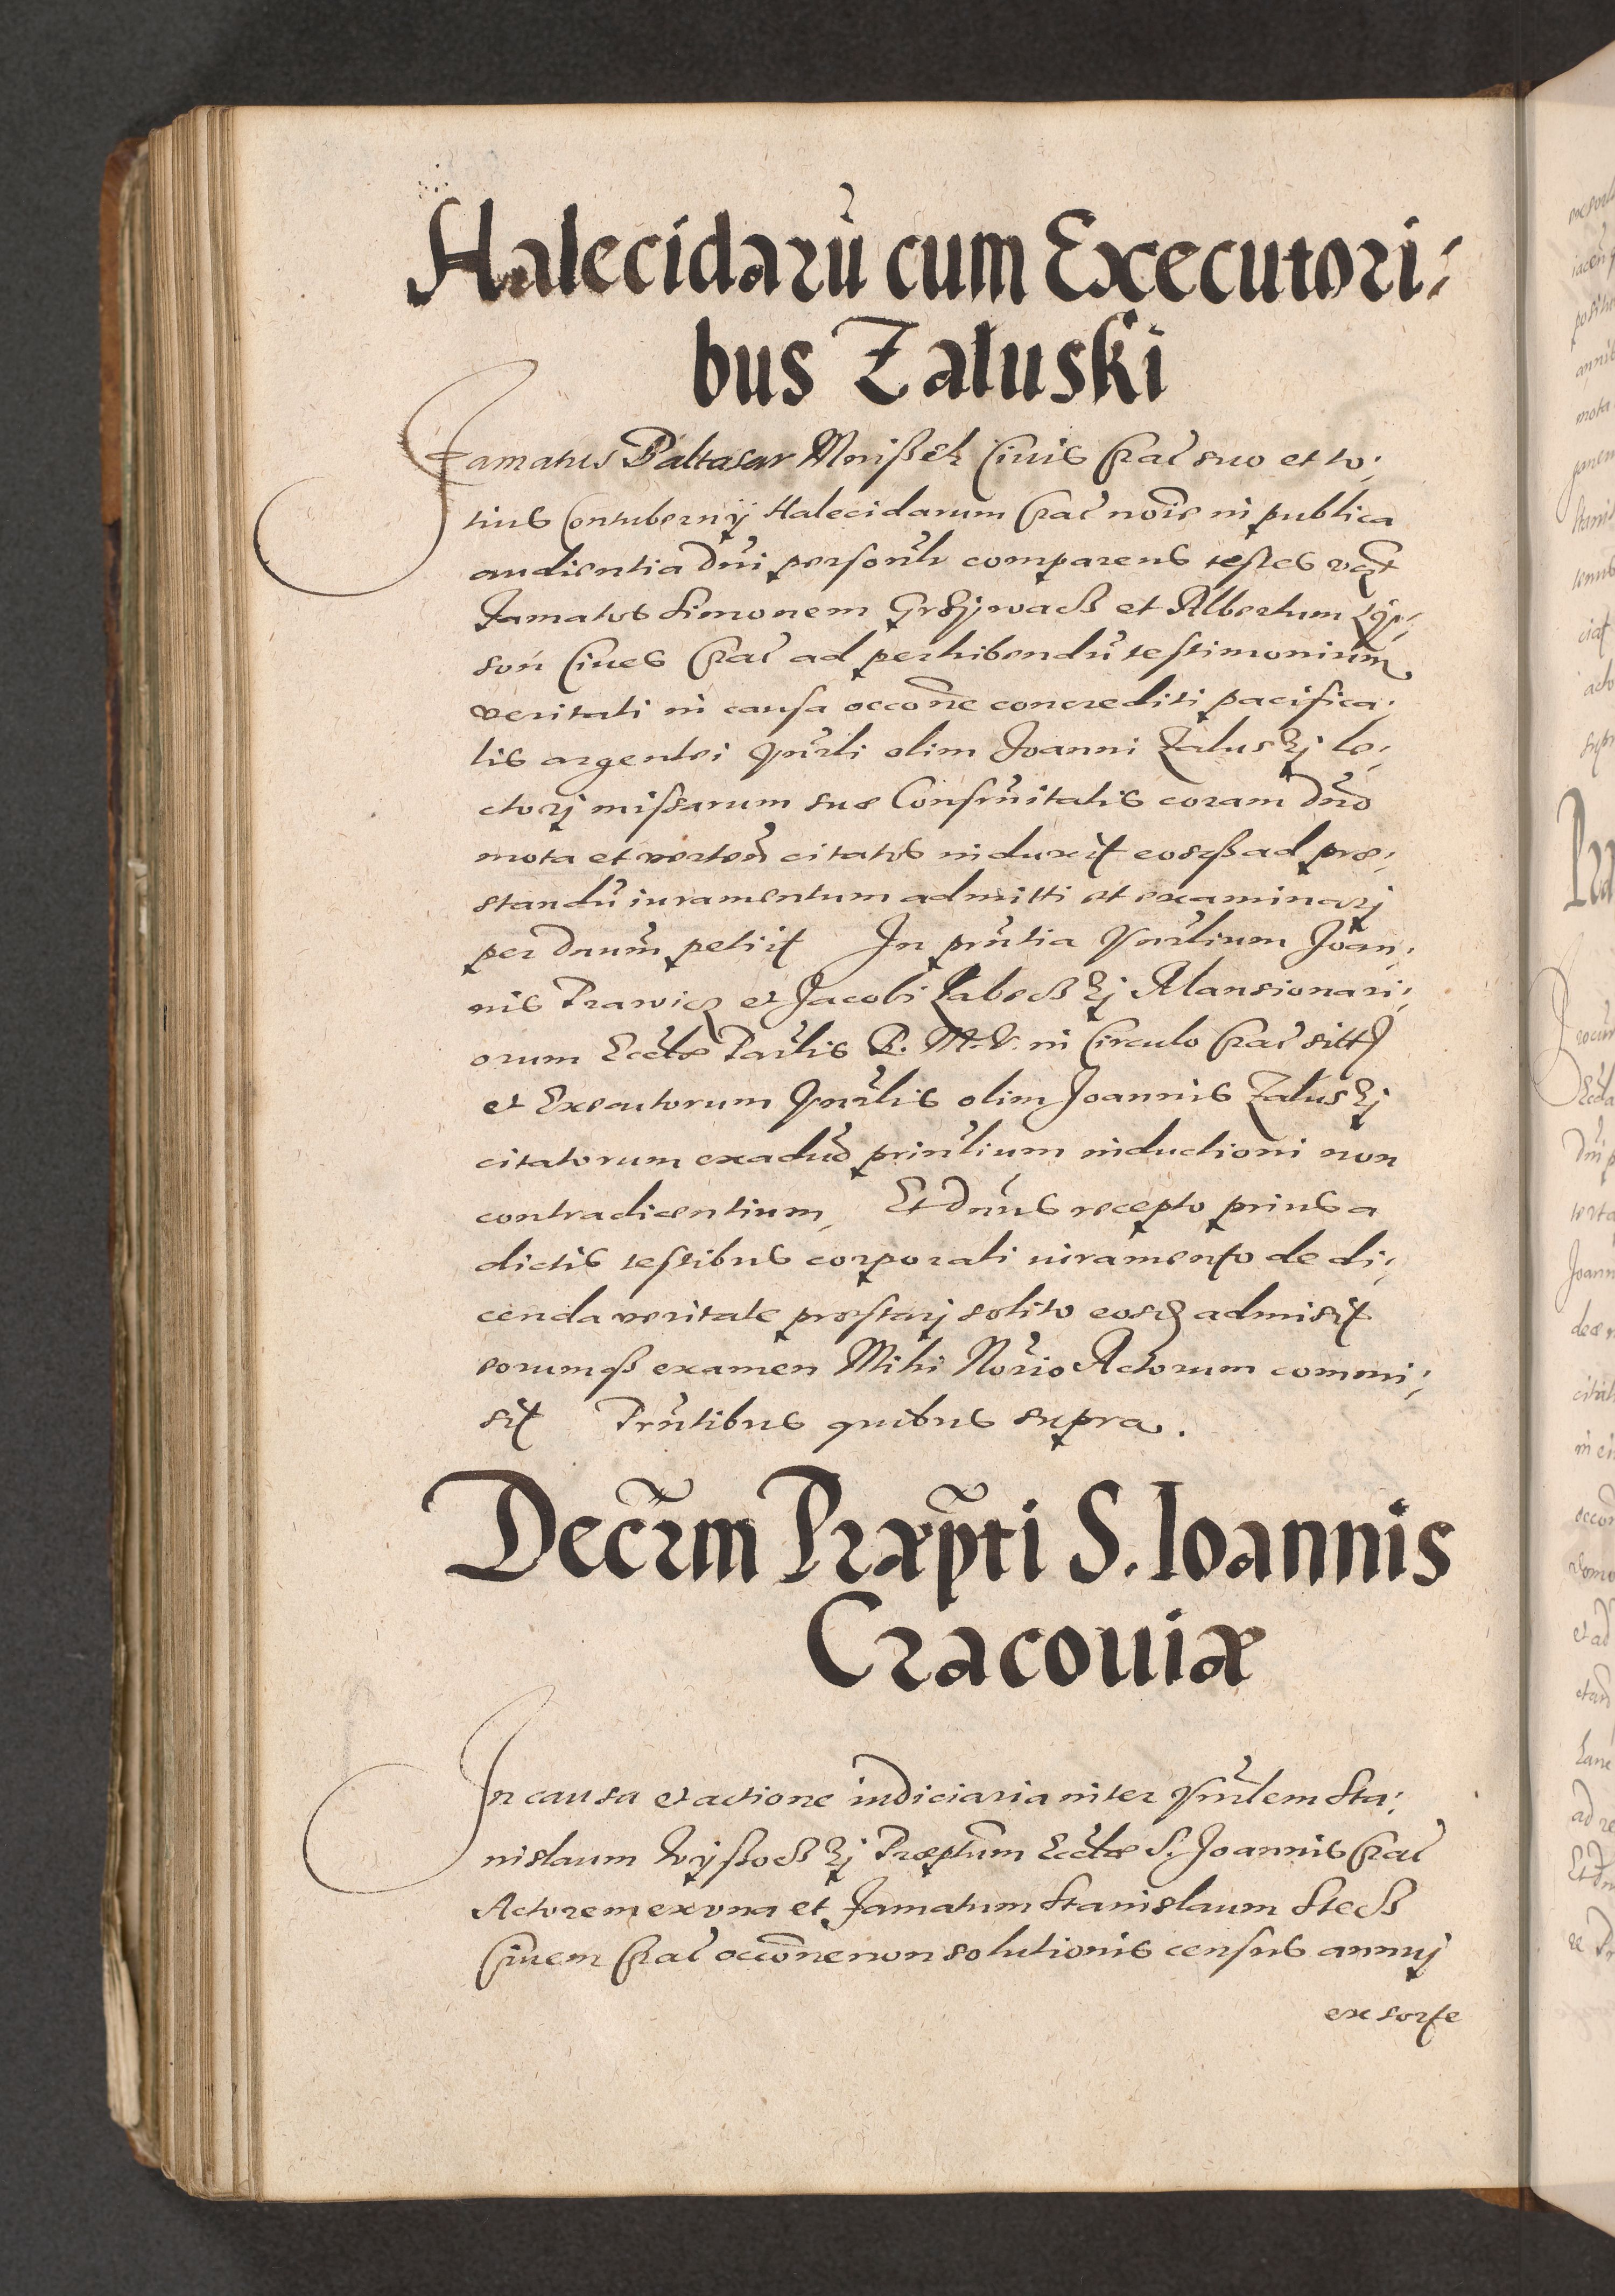 Halecidarū cum Executori⸗
bus Zaluski
Famatus Baltasar Mnißek Ciuis Crac̃ suo et to⸗
tius Contubernÿ Halecidarum Crac̃ noĩe in publica
audientia Dn̄i personl̃r comparens testes vz̃t
Famatos Simonem et Albertum
son̄ Ciues Crac̃ ad perhibendū testimonium
veritati in causa occõne concrediti pacifica⸗
lis argentei Vn̄rli olim Joanni Zaluskj le⸗
ctorj missarum suæ Confrn̄itatis coram Dn̄o
mota et verten̄ citatos induxit eosq̃ß ad præ⸗
standū iuramentum admitti et examinarj
per Dnum̄ petiit In prn̄tia Vn̄rlium Joan⸗
nis Prawicz et Jacobi Labeckj Mansionari⸗
orum Eccl̃æ Parl̃is B. M. V. in Circulo Crac̃ sittæ
et Executorum Vn̄rlis olim Joannis Zaluskj
citatorum exaduō prin̄lium inductioni non
contradicentium, Et Dn̄us recepto prius a
dictis testibus corporali iuramento de di⸗
cenda veritate præstarj solito eosq̃ admisit
eorumqß examen Mihi Nor̃io Actorum commi⸗
sit Prn̄tibus quibus supra.
Decr̃m Præp̃ti S. Ioannis
Cracouiæ
In causa et actione iudiciaria inter Vn̄rlem Sta⸗
nislaum Wyßockj Præptum̃ Eccl̃æ S. Joannis Crac̃
Actorem ex vna et Famatum Stanislaum Steck
Ciuem Crac̃ occõne non solutionis census annuj
ex sorte